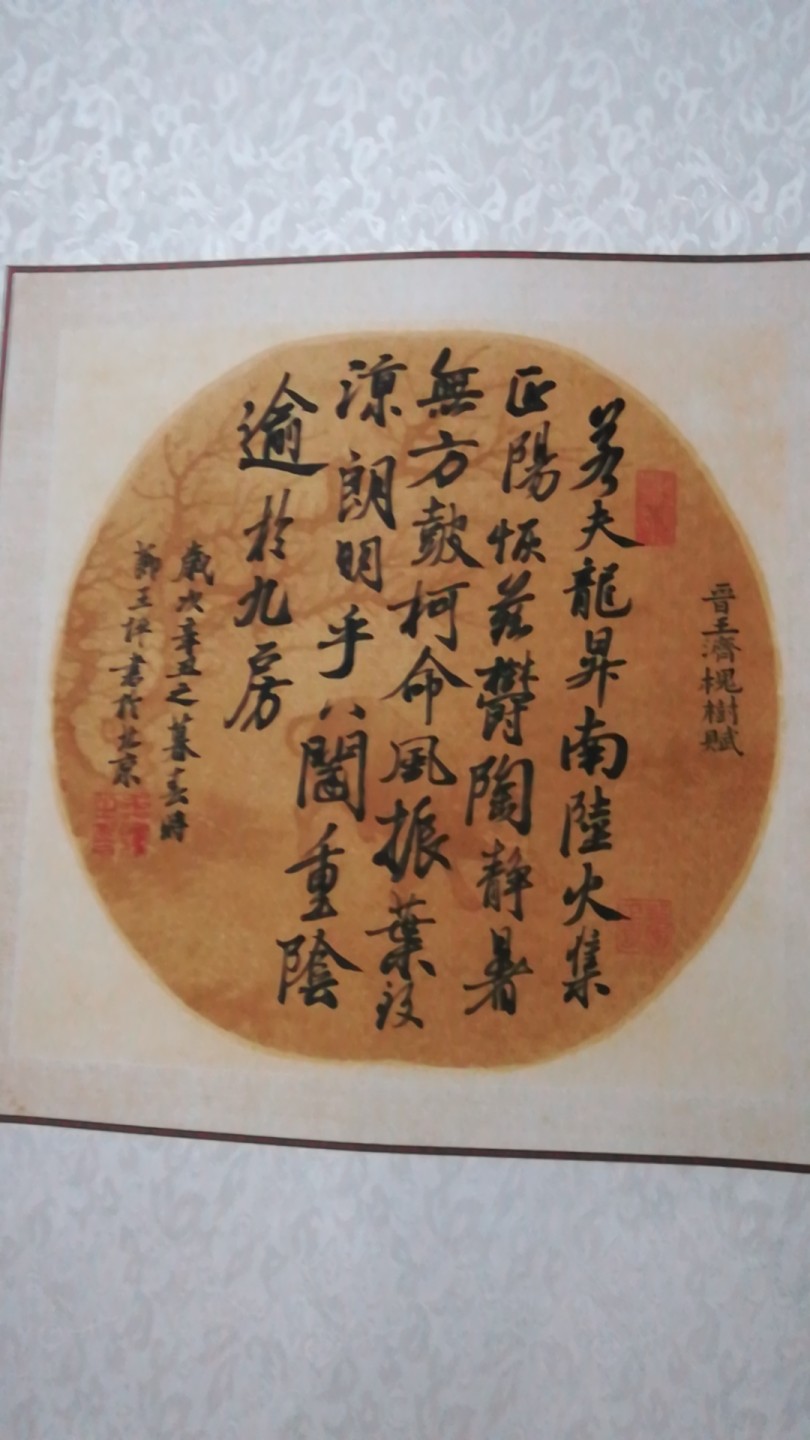 晋王濟槐樹賦
若夫龍昇南陸火集
正陽恢茲鬱陶静暑
無方鼓柯命風振葉致
涼朗明乎八闥重陰
逾於九房
歲次辛丑之暮春時
節王坪書於北京